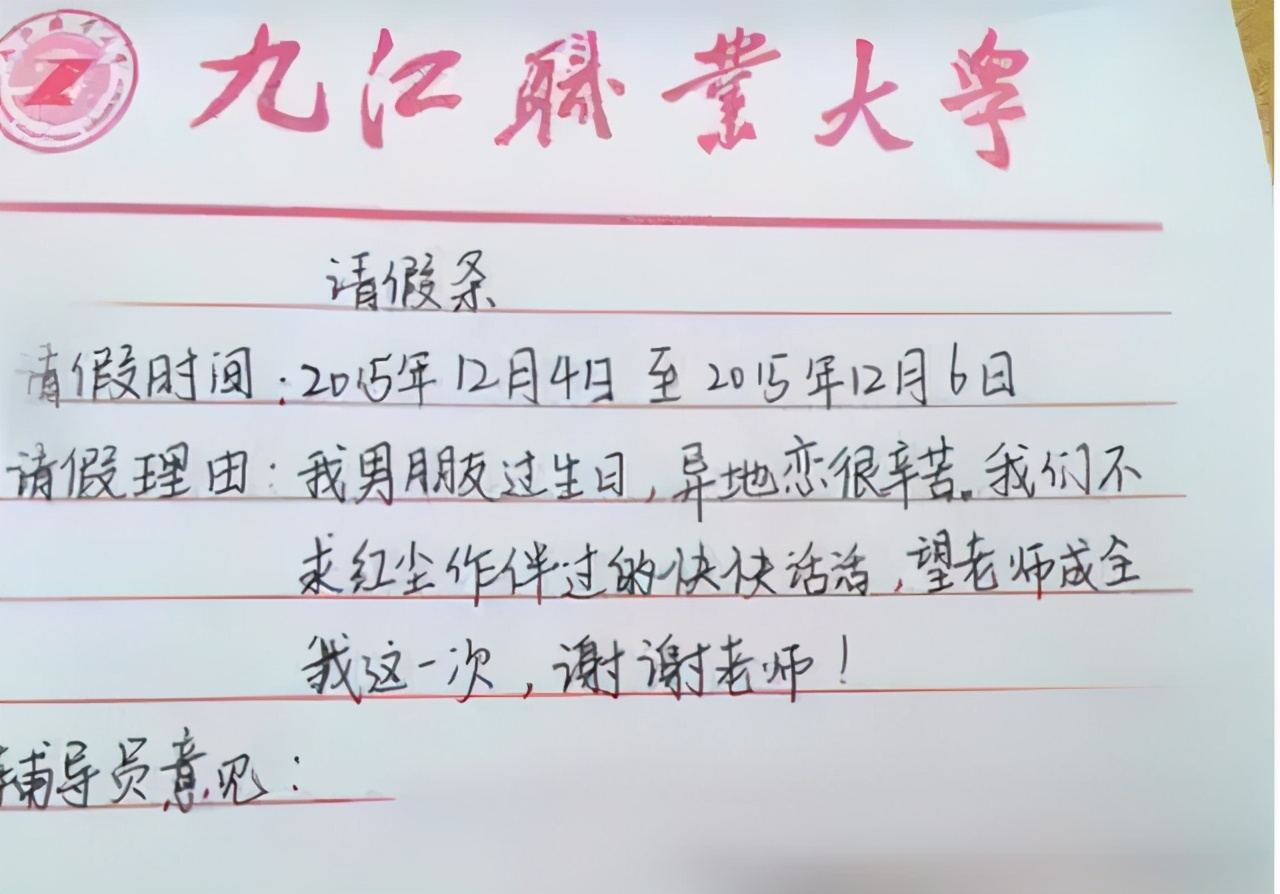 九江職業大学
请假条
请假时间:2015年12月4日 至 2015年12月6日
请假理由:我男朋友过生日,异地恋很辛苦。我们不
求红尘作伴过的快快活活,望老师成全
我这一次,谢谢老师!
辅导员意见: